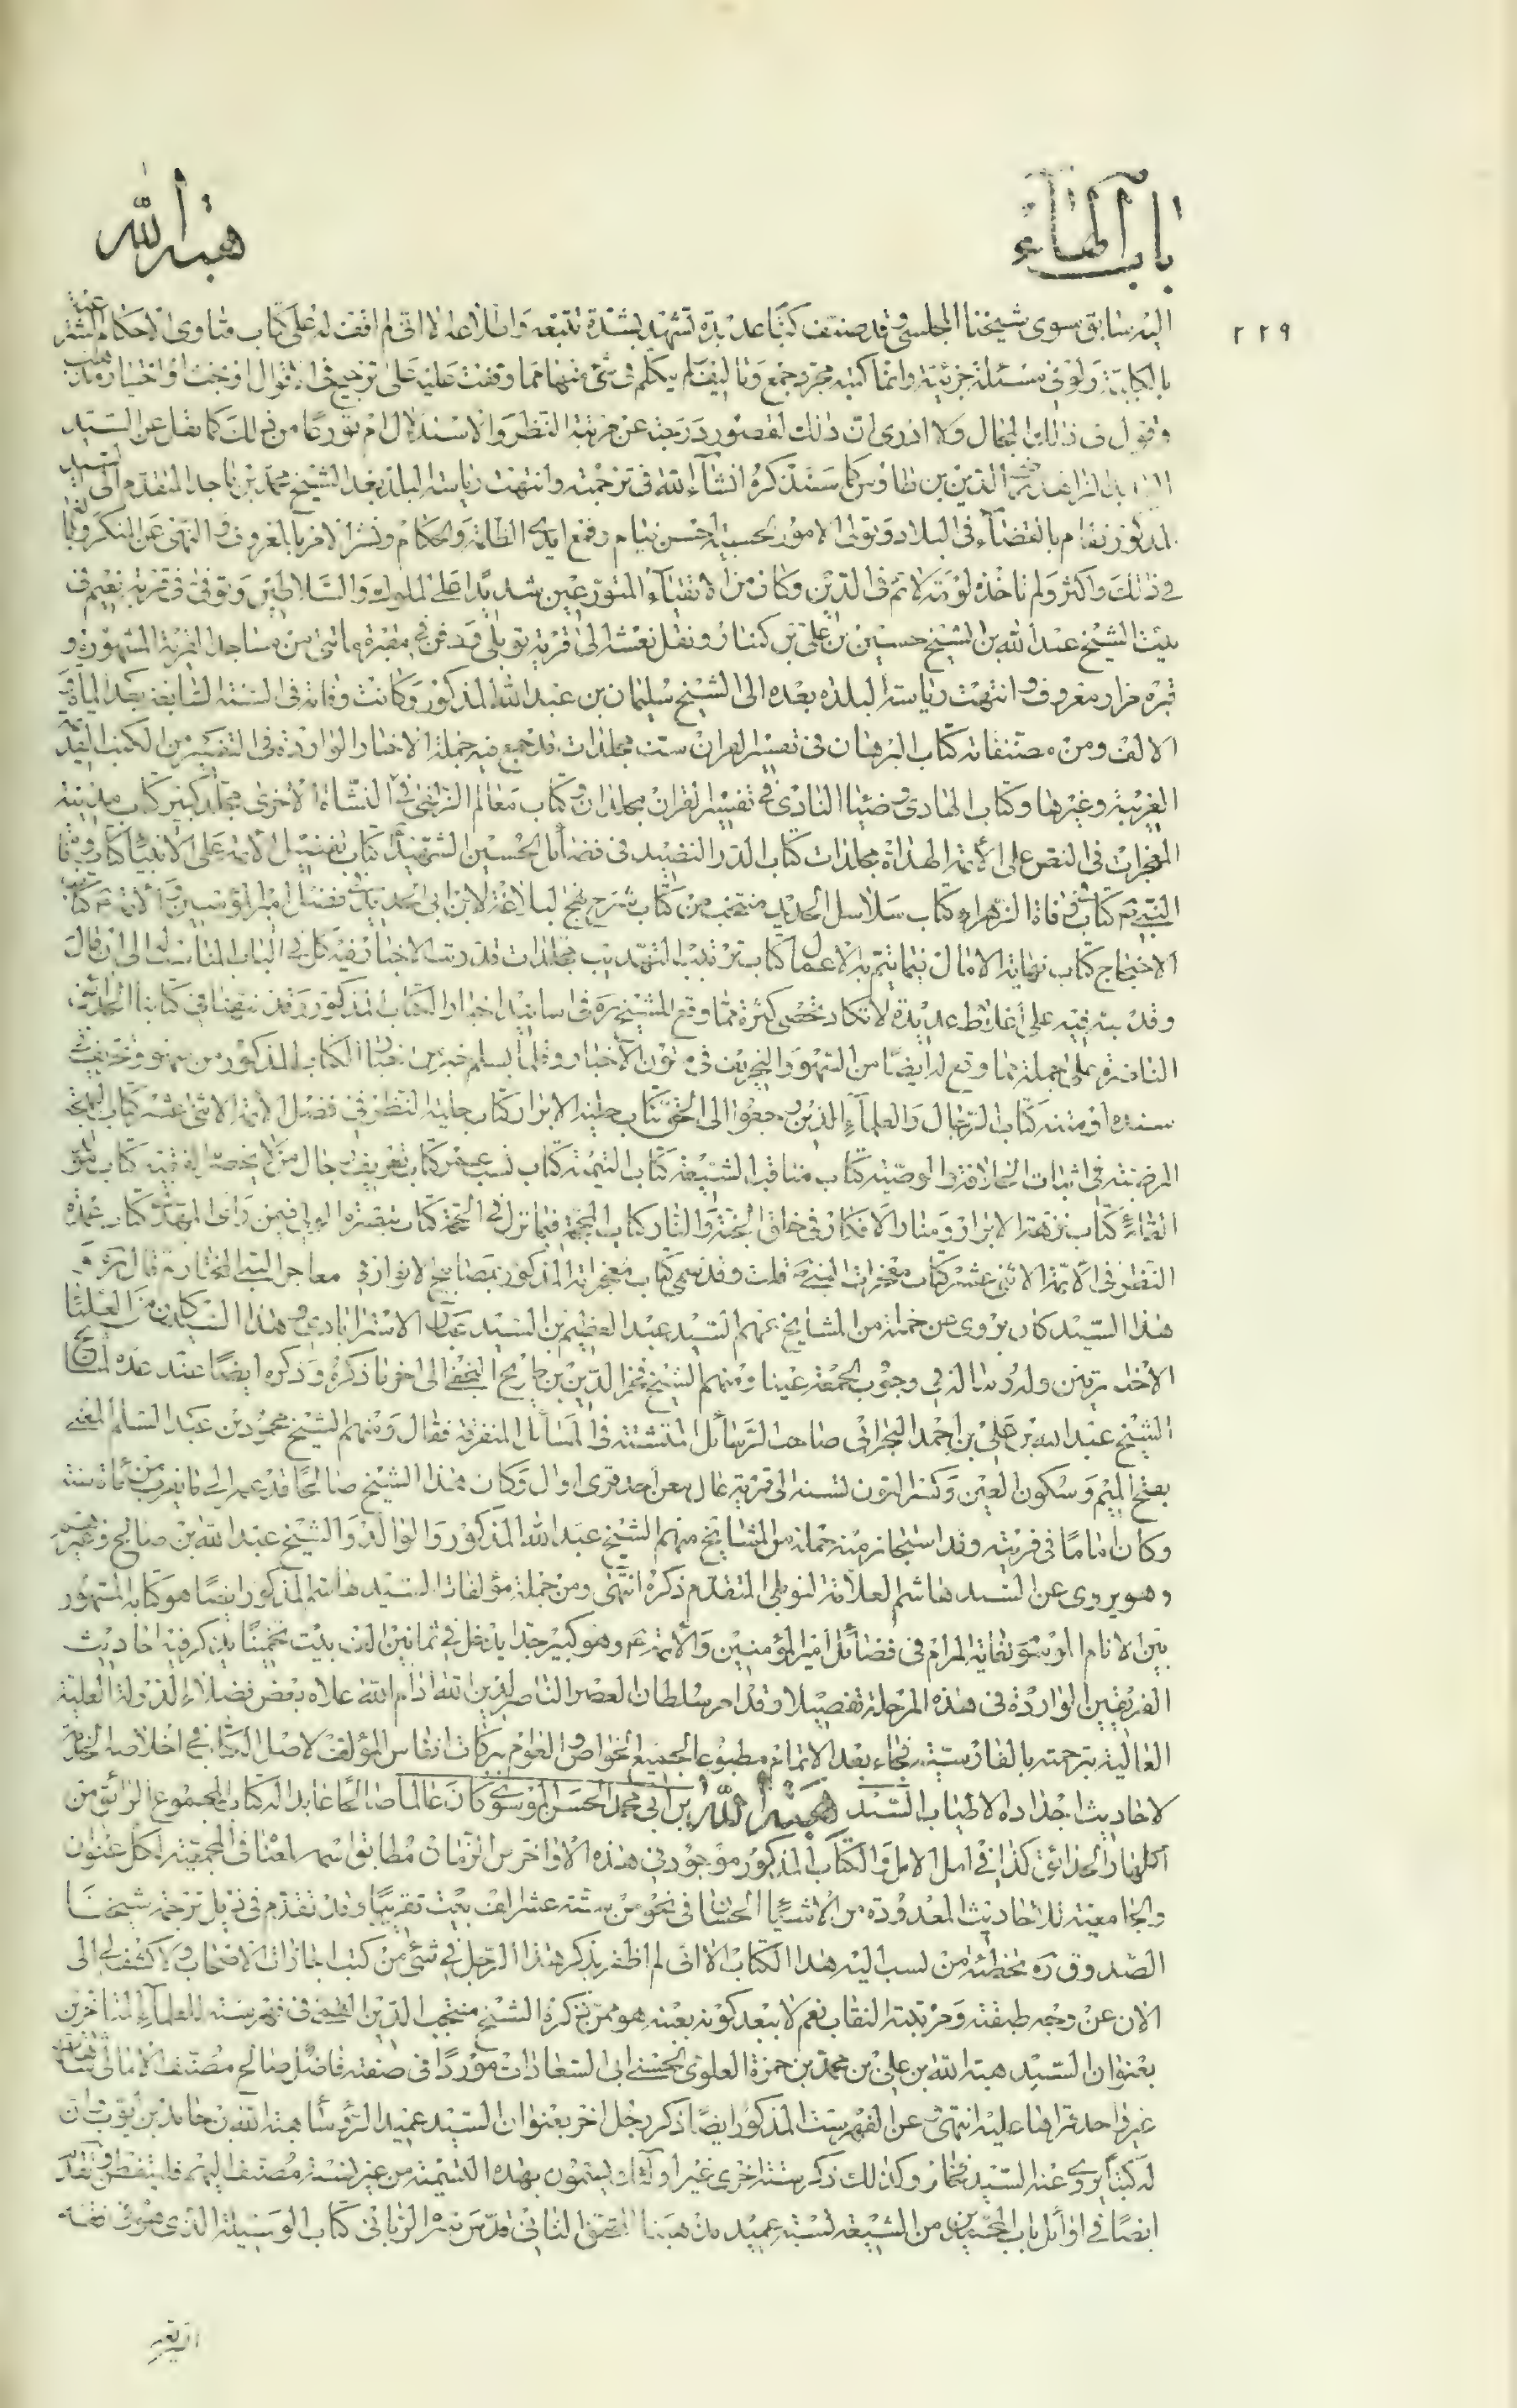 باب الهاء
هبة الله
٢٢٩
اليه سابق سوى شيخنا المجلسي وقد صنف كتبا عديدة تشهد بشدة تتبعه واطلاعه الا اني لم اقف له على كتاب فتاوى الاحكام الشرعية
بالكلية ولو في مسئلة جزئية وانما كتبه مجرد جمع وتاليف لم يتكلم في شئ منها مما وقفت عليه على ترجيح في الاقوال او بحث او اختيار مذهب
وقول في ذلك المجال ولا ادرى ان ذلك لقصور درجته عن مرتبة النظر والاستدلال ام تورعا من ذلك كما نقل عن السيد
الزاهد رضي الدين بن طاوس كما سنذكره انشاء الله في ترجمته وانتهت رياسة البلد بعد الشيخ محمد بن ماجد المتقدم الى السيد
المذكور فقام بالقضاء في البلاد وتولى الامور الحسبية احسن قيام وقمع ايدي الظلمة والحكام ونشر الامر بالمعروف والنهى عن المنكر وبالغ
في ذلك واكثر ولم تاخذه لومة لائم في الدين وكان من الاتقياء المتورعين شديدا على الملوك والسلاطين وتوفى في قرية نعيم في
بيت الشيخ عبد الله بن الشيخ حسين بن علي بن كنبار ونقل نعشه الى قرية توبلي ودفن في مقبرة ماتني من مساجد القرية المشهورة و
قبره مزار معروف وانتهت رياسة البلد بعده الى الشيخ سليمان بن عبد الله المذكور وكانت وفاته في السنة السابعة بعد الماة و
الالف ومن مصنفاته كتاب البرهان في تفسير القران ست مجلدات قد جمع فيه جملة الاخبار الواردة في التفسير من الكتب القديمة
الغريبة وغيرها وكتاب الهادى وضياء النادى في تفسير القران مجلدان وكتاب معالم الزلفى في النشاة الاخرى مجلد كبير كتاب مدينة
المعجزات في النص على الأئمة الهداة مجلدات كتاب الدر النضيد في فضائل الحسين الشهيد كتاب تفضيل الأئمة على الانبياء كتاب وفاة
النبي كتاب وفاة الزهراء كتاب سلاسل الحديد منتخب من كتاب شرح نهج البلاغة لابن ابي الحديد في فضل امير المؤمنين والأئمة كتاب
الاحتجاج كتاب نهاية الامال فيما يتم به الاعمال كتاب ترتيب التهذيب مجلدات قد رتب الاخبار فيه كل في الباب المناسب له الى ان قال
وقد نبه فيه على اغلاط عديدة لا تكاد تحصى كثرة مما وقع للشيخ ره في اسانيد اخبار الكتاب المذكور وقد نبهنا في كتابنا الحدائق
الناضرة على جملة مما وقع له ايضا من السهو والتحريف في متون الاخبار وقلما يسلم خبر من اخبار الكتاب المذكور من سهو وتحريف في
سنده او متنه كتاب الرجال والعلماء الذين رجعوا الى الحق كتاب حلية الابرار كتاب حلية النظر في فضل الائمة الاثنى عشر كتاب البهجة
المرضية في اثبات الخلافة والوصية كتاب مناقب الشيعة كتاب اليتيمة كتاب نسب عمر كتاب تعريف رجال من لا يحضره الفقيه كتاب مولد
القائم كتاب نزهة الابرار ومنار الافكار في خلق الجنة والنار كتاب المحجة فيما نزل في الحجة كتاب تبصرة الولي فيمن راى المهدي كتاب عمدة
النظر في الأئمة الاثنى عشر كتاب معجزات النبي قلت وقد سمى كتاب معجزاته المذكور بمصابيح الانوار في معاجز النبي المختار ثم قال ره و
هذا السيد كان يروى عن جملة من المشايخ منهم السيد عبد العظيم بن السيد عباس الاسترابادى وهذا السيد كان من العلماء
الاخباريين وله رسالة في وجوب الجمعة عينا ومنهم الشيخ فخر الدين بن طريح النجفي الى اخر ما ذكره وذكره ايضا عند عده لمشايخ
الشيخ عبد الله بن علي بن احمد البحراني صاحب الرسائل المتشتتة في المسائل المتفرقة فقال ومنهم الشيخ محمود بن عبد السلام المعني
بفتح الميم وسكون العين وكسر النون نسبة الى قرية عالى معن احد قرى اوال وكان هذا الشيخ صالحا قد عمر الى ما يقرب من مأة سنة
وكان اماما في قريته وقد استجاز منه جملة من المشايخ منهم الشيخ عبد الله المذكور والوالد والشيخ عبد الله بن صالح وغيرهم
وهو يروى عن السيد هاشم العلامة التوبلي المتقدم ذكره انتهى ومن جملة مؤلفات السيد هاشم المذكور ايضا هو كتابه المشهور
بين الانام الموسوم بغاية المرام في فضائل امير المؤمنين والأئمة ع وهو كبير جدا يدخل في ثمانين الف بيت تخمينا يذكر فيه احاديث
الفريقين الواردة في هذه المرحلة تفصيلا وقد امر سلطان العصر الناصر لدين الله ادام الله علاه بعض فضلاء الدولة العلية
العالية بترجمته بالفارسية فجاء بعد الاتمام مطبوعا لجميع الخواص والعوام ببركات انفاس المؤلف لاصل الكتاب في اخلاصه الخاص
لاحاديث اجداده الاطياب السيد هبة الله بن ابي محمد الحسن الموسوي كان عالما صالحا عابدا له كتاب المجموع الرائق من
ازهار الحدائق كذا في امل الامل والكتاب المذكور موجود في هذه الاواخر من الزمان مطابق اسمه لمعناه في المجمعية لكل عنوان
والجامعية للاحاديث المعدودة من الاشياء الحسان في نحو من ستة عشر الف بيت تقريبا وقد تقدم في ذيل ترجمة شيخنا
الصدوق ره تخطئة من نسب اليه هذا الكتاب الا اني لم اظفر بذكر هذا الرجل في شئ من كتب اجازات الاصحاب ولا كشف لي الى
الان عن وجه طبقته ومرتبته النقاب نعم لا يبعد كونه بعينه هو ممن ذكره الشيخ منتجب الدين القمي في فهرسته للعلماء المتاخرين
بعنوان السيد هبة الله بن علي بن محمد بن حمزة العلوى الحسني ابي السعادات موردا في صفته فاضل صالح مصنف الامالى
غير واحد قراها عليه انتهى وعن الفهرست المذكور ايضا ذكر رجل اخر بعنوان السيد عميد الرؤسا هبة الله بن حامد بن ايوب ان
له كتبا يروى عنه السيد فخار وكذلك ذكر ستة اخرى غير اولئك يسمون بهذه التسمية من غير نسبة مصنف اليهم فليتفطن وتقدم
ايضا في اوائل باب المحمدين من الشيعة نسبة عميد الدين هبة الله المحقق الثاني قدس سره الرباني كتاب الوسيلة الذى هو في فقه